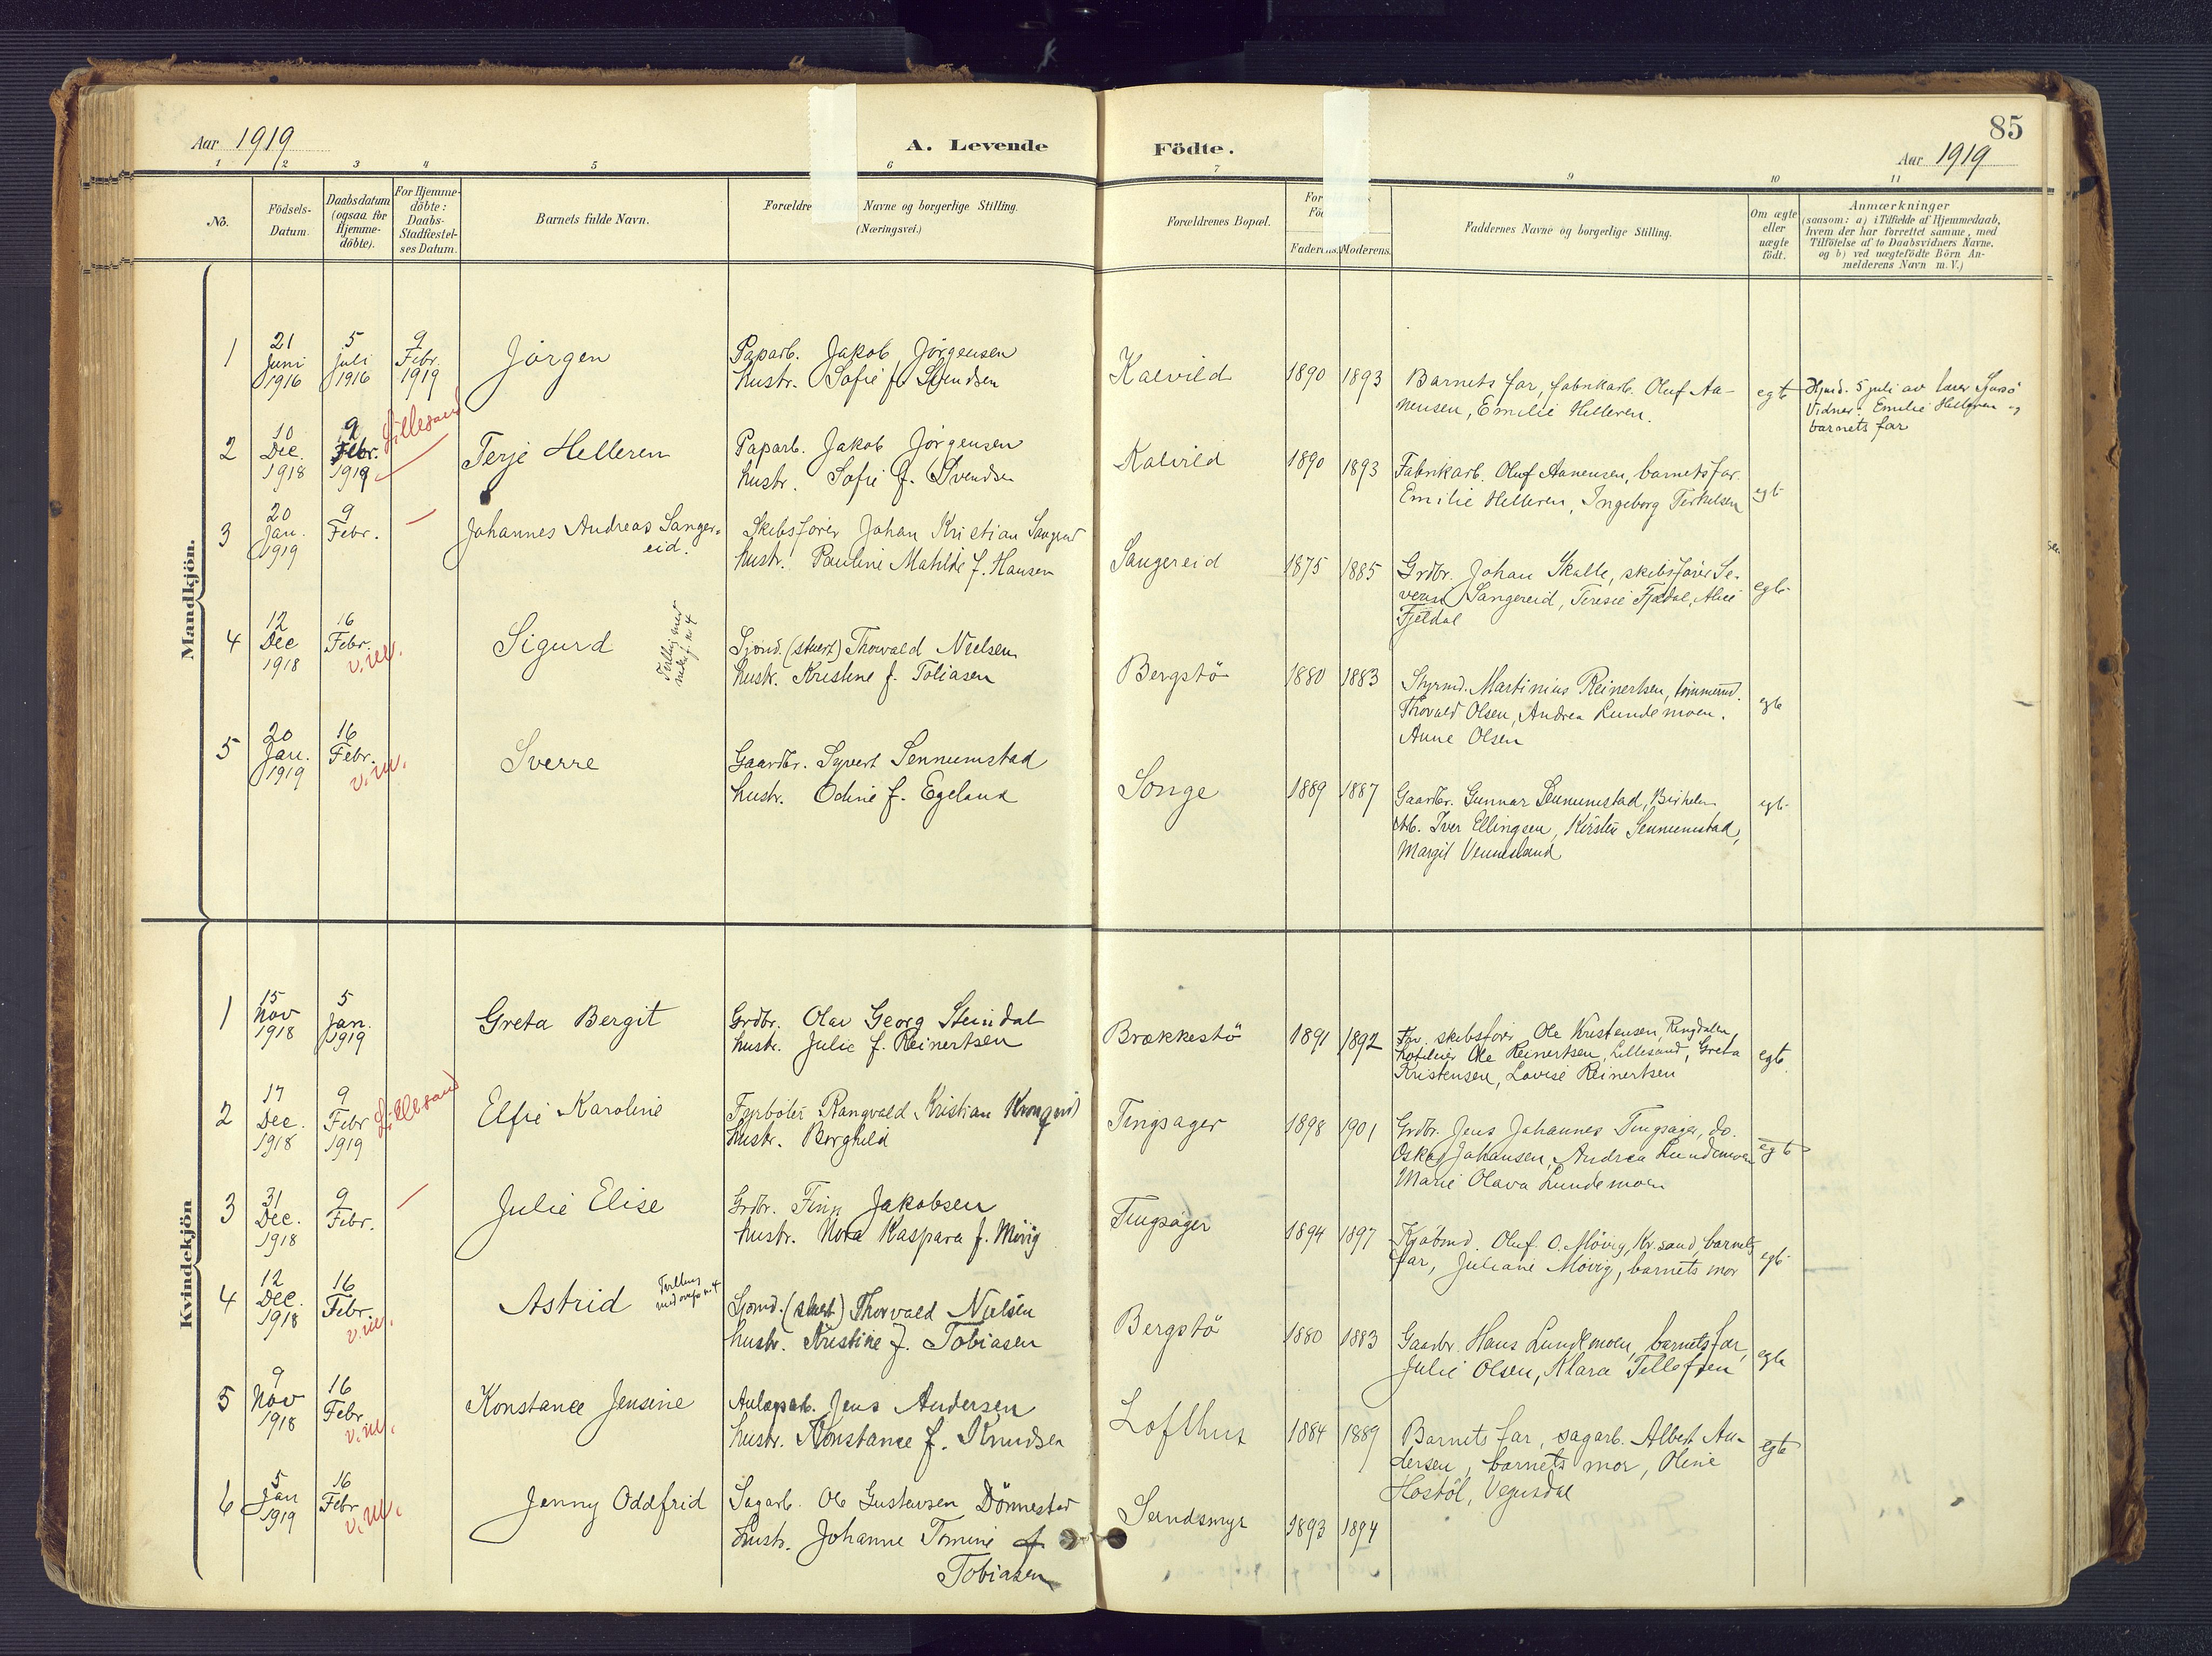 85
Aar 1919
A. Levende Födte.
Aar 1919
1 2 3 4 5 6 7 9 10 11
No.
Födsels-
Datum.
Daabsdatum
(ogsaa for
Hjemme-
döbte).
For Hjemme-
döbte:
Daabs-
Stadfæstel-
ses Datum.
Barnets fulde Navn.
Forældre Navne og borgerlige Stilling.
(Næringsvei.)
Forældrenes Bopæl.
For
Fö
Faderens. Moderens.
Faddernes Navne og borgerlige Stilling.
Om ægte
eller
uægte
födt.
Anmærkninger
(saasom: a) i Tilfælde af Hjemmedaab,
hvem der har forrettet samme, med
Tilföielse af to Daabsvidners Navne.
og b) ved uægtefödte Börn An-
melderens Navn m. V.)
Mandkjön.
1
21
Juni
1916
5
Juli
1916
9
Febr.
1919
Jörgen
Paparb. Jakob Jörgensen
hustr. Sofie f. Svendsen
Kalvild
1890 1893
Barnets far, fabrikarb. Oluf Aa-
nensen, Emilie Helleren.
egt
Hjmd. 5 juli av lærer
Vidner: Emilie Helleren og
barnets far
2
10
Dec.
1918
9
Febr.
1919
Lillesand
Terje Helleren
Paparb. Jakob Jörgensen
hustr. Sofie f. Svendsen
Kalvild
1890 1893
Fabrikarb. Oluf Aanensen, barnets far.
Emilie Helleren, Ingeborg Terkelsen
egt
3
20
Jan.
1919
9
Febr.
—
Johannes Andreas Sanger-
eid.
Skibsförer Johan Kristian Sangereid
hustr. Pauline Matilde f. Hansen
Sangereid
1875 1885
Grdbr. Johan Skalle, skibsförer Se-
verin Sangereid, Teresie Fjeldal, Alice
Fjeldal
egt
4
12
Dec
1918
16
Febr.
v.m.
Sigurd
Tvilling med
nedenf. no 4
Sjömd. (stuert) Thorvald Nielsen
hustr. Kristine f. Tobiasen
Bergstö
1880 1883
Styrmd. Martinius Reinertsen, tömmermd.
Thorvald Olsen, Andrea Lundemoen.
Anne Olsen
egt
5
20
Jan.
1919
16
Febr.
v.m.
Sverre
Gaardbr. Syvert Sennumstad
hustr. Odine f. Egeland
Songe
1889 1887
Gaardbr. Gunnar Sennumstad, Birkeland
Arb. Iver Ellingsen, Kirsten Sennumstad,
Margit Vennesland
egt
Kvindekjön
1
15
Nov
1918
5
Jan.
1919
Greta Bergit
Grdbr. Olav Georg Steindal
hustr. Julie f. Reinertsen
Brækkestö
1891 1892
Fhv. skibsförer Ole Kristensen, Ringdalen,
hotelier Ole Reinertsen, Lillesand, Greta
Kristensen, Lovise Reinertsen
egt
2
17
Dec.
1918
9
Febr
1919
Lillesand
Elfie Karoline
Fyrböter Rangvald Kristian Kronqvist
hustr. Borghild
Tingsager
1898 1901
Grdbr. Jens Johannes Tingsager, do.
Oskar Johansen, Andrea Lundemoen
Marie Olava Lundemoen
egt
3
31
Dec.
1918
9
Febr.
—
Julie Elise
Grdbr. Finn Jakobsen
hustr. Nora Kaspara f. Mövig
Tingsager
1894 1897
Kjöbmd. Oluf O. Mövig, Kr.sand, barnets
far, Juliane Mövig, barnets mor
egt
4
12
Dec.
1918
16
Febr.
v.m.
Astrid
Tvilling
med ovenf. no 4
Sjömd. (stuert) Thorvald Nielsen
hustr. Kristine f. Tobiasen
Bergstö
1880 1883
Gaardbr. Hans Lundemoen, barnets far,
Julie Olsen, Klara Tellefsen
egt
5
9
Nov
1918
16
Febr.
v.m.
Konstance Jensine
Anlægsarb. Jens Andersen
hustr. Konstance f. Knudsen
Lofthus
1884 1889
Barnets far, sagarb. Albert An-
dersen, barnets mor, Oline
Hostöl, Vegusdal
egt
6
5
Jan
1919
16
Febr
v.m.
Jenny Oddfrid
Sagarb. Ole Gustavsen Dönnestad
hustr. Johanne Tomine f
Tobiasen
Sandsmyr
1893 1894